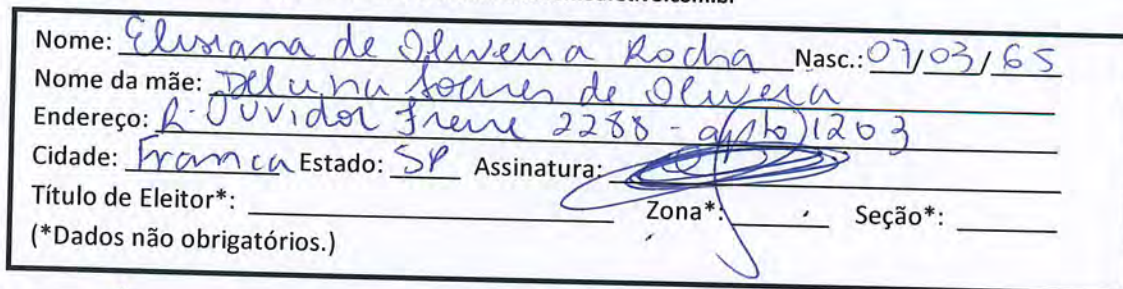 Nome: Elisiana de Oliveira Rocha Nasc.: 07/03/65
Nome da mãe: Soares de Oliveira
Endereço: R. Ouvidor Freire 2288 - apto 1203
Cidade: Franca Estado: SP Assinatura:
Título de Eleitor*: Zona*: Seção*:
(*Dados não obrigatórios.)